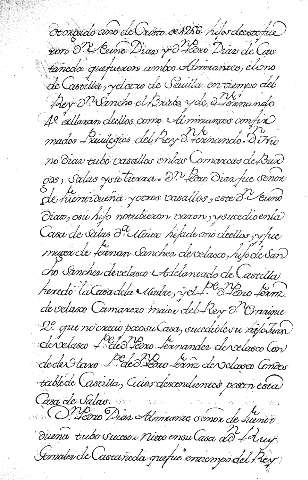 otorgado año de Cristo de 1286. hijos deeste fue
ron Dn. Nuño Diaz y Dn. Pero Diaz de Cas
tañeda que fueron ambos Almirantes, el uno
de Castilla, y el otro de Sevilla en tiempo del
Rey Dn. Sancho el Brabo y de Dn. Fernando
4o. e hallaran dellos como Almirantes confir
mados Privilegios del Rey Dn. Fernando. Dn. Nu
no Diaz tubo vasallos en las Comarcas de Bur
gos, Salas y su tierra. Dn. Pero Diaz fue señor
de fuentidueña y otros vasallos, este Dn. Nuño
Diaz, o su hijo no hubieron varon, y sucedio en la
Casa de Salas Da. Maior hija de uno de ellos, y fue
muger de fernan Sanchez de velasco, hijo de San
cho Sanchez de velasco Adelantado de Castilla
heredó la Casa de la Madre, y el Pe. Dn. Pedro fernz.
de velasco Camarero maior del Rey Dn. Enrique
2o. que no crecio poco su Casa, sucediole su hijo Juan
de velasco Pe. de Dn. Pedro fernandez de velasco Con
de de Haro Pe. de Dn. Pedro fernz. de velasco Condes
table de Castilla, cuios descendientes poseen esta
Casa de Salas.
Dn. Pedro Diaz Almirante señor de fuenti
dueña tubo sucesor Nieto en su Casa a Dn. Ruy
Gonzalez de Castañeda que fue en tiempo del Rey